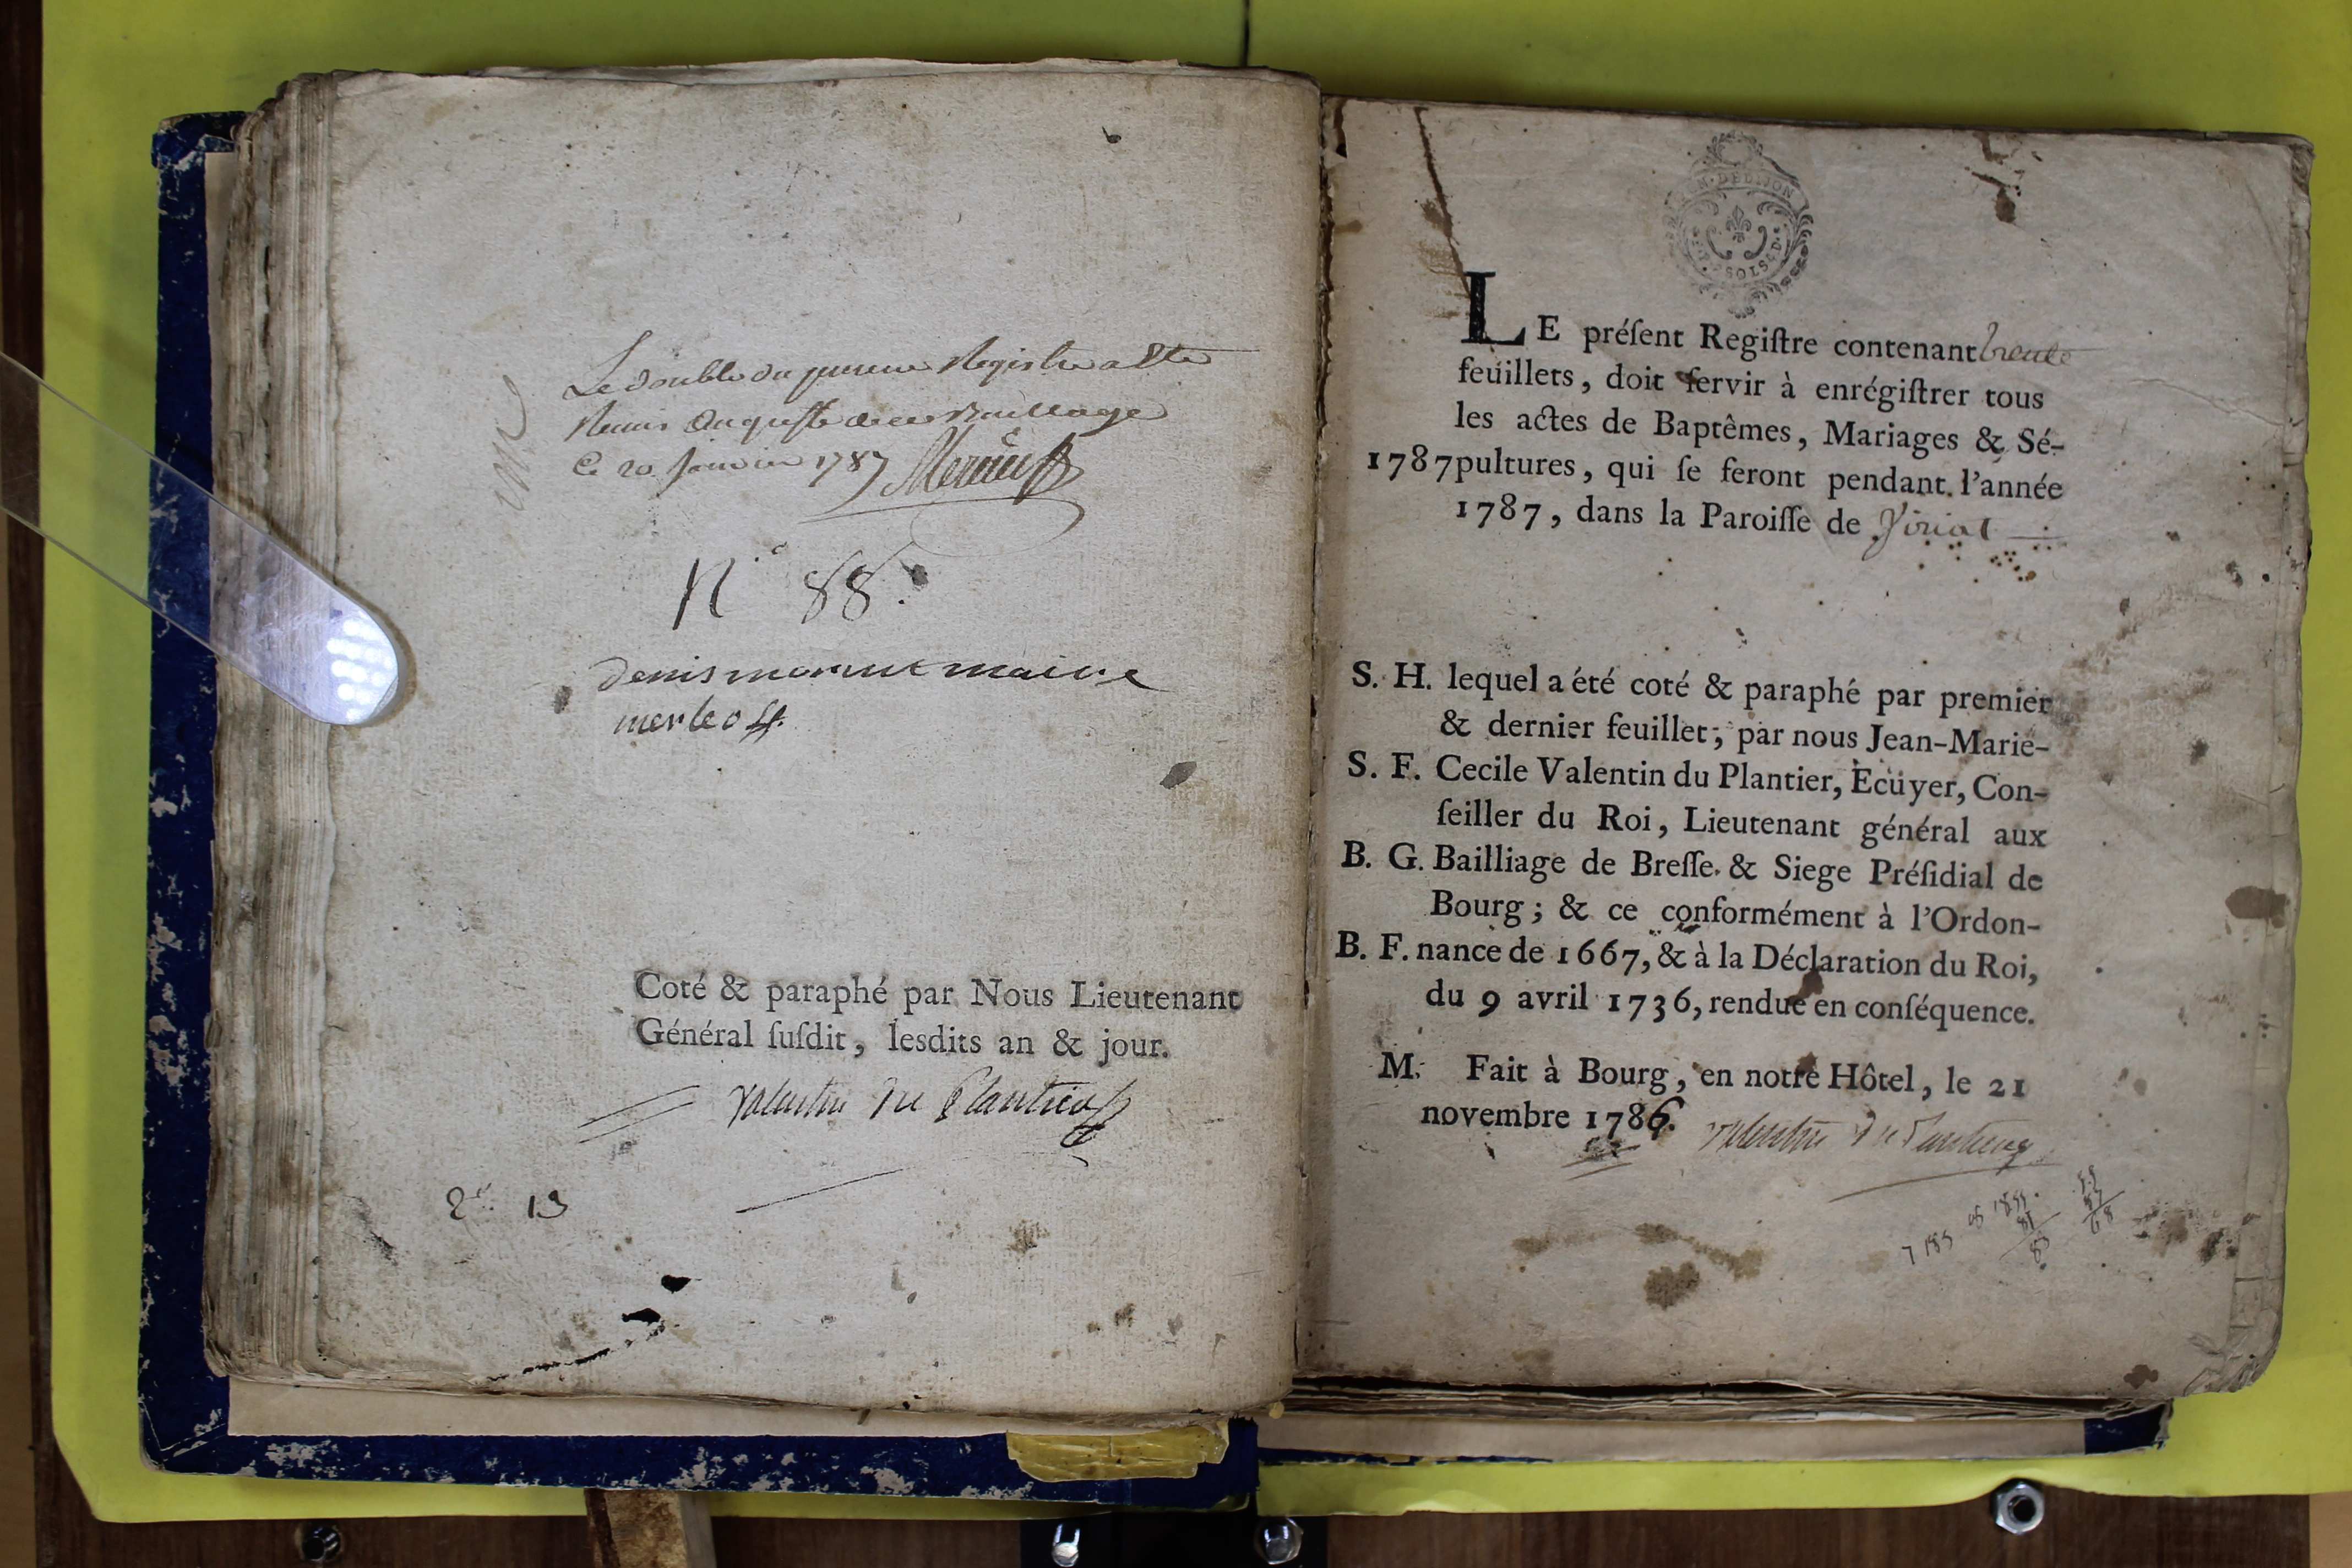 Le double du présent Registre a été
Remis au greffe de ce Bailliage
Ce 20 Janvier 1787
N° 88.
denis maire
merle
Coté & paraphé par Nous Lieutenant
Général ſuſdit, leſdits an & jour.
Valentin du Plantier
2e 13
DE DIJON
SOLS
LE préſent Regiſtre contenant trente
feuillets, doit ſervir à enrégiſtrer tous
les actes de Baptêmes, Mariages & Sé-
1787 pultures, qui ſe feront pendant l'année
1787, dans la Paroiſſe de Viriat
S. H. lequel a été coté & paraphé par premier
& dernier feuillet, par nous Jean-Marie-
S. F. Cecile Valentin du Plantier, Ecuyer, Con-
ſeiller du Roi, Lieutenant général aux
B. G. Bailliage de Breſſe & Siege Préſidial de
Bourg ; & ce conformément à l'Ordon-
B. F. nance de 1667, & à la Déclaration du Roi,
du 9 avril 1736, rendue en conſéquence.
M. Fait à Bourg, en notre Hôtel, le 21
novembre 1786.
Valentin du Plantier